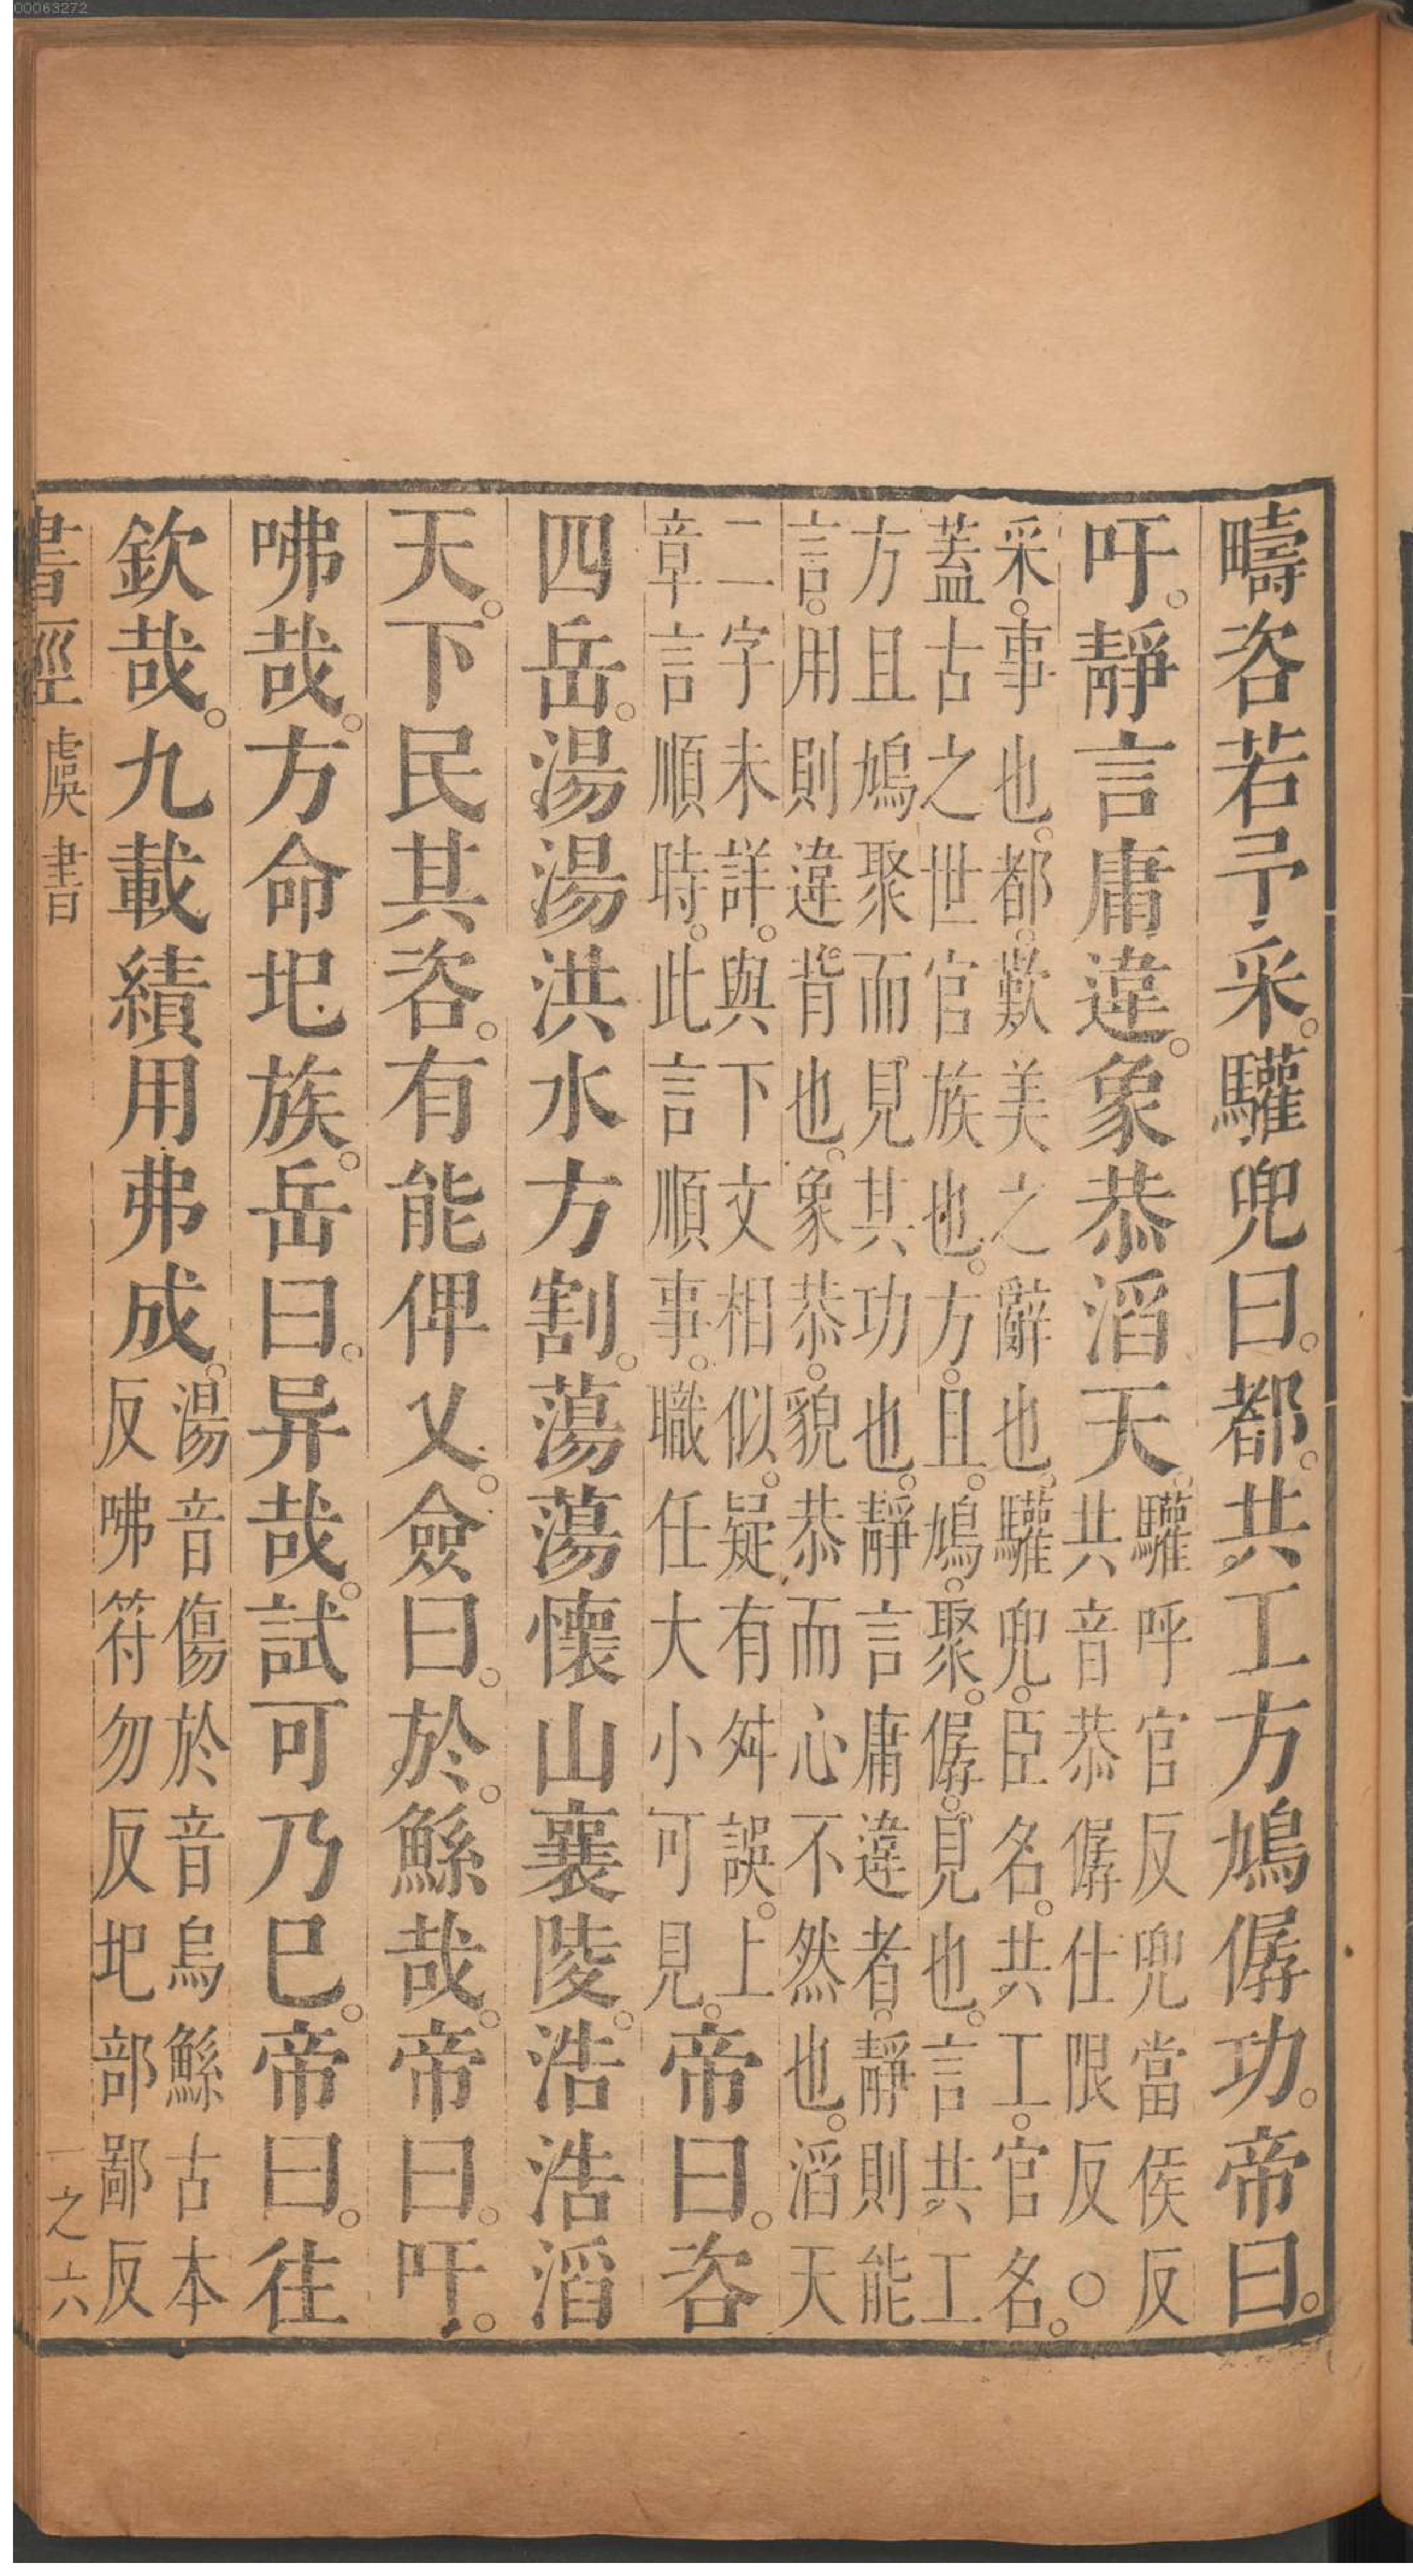 00063272
疇咨若予采。驩兜曰。都。共工方鳩僝功。帝曰。
吁。靜言庸違。象恭滔天。驩呼官反兜當侯反
共音恭僝仕限反○
采。事也。都。歎美之辭也。驩兜。臣名。共工。官名。
蓋古之世官族也。方。且。鳩。聚。僝。見也。言共工
方且鳩聚而見其功也。靜言庸違者。靜則能
言。用則違。背也。象恭。貌恭而心不然也。滔天
二字未詳。與下文相似。疑有舛誤。上
章言順時。此言順事。職任大小可見。帝曰。咨
四岳。湯湯洪水方割。蕩蕩懷山襄陵。浩浩滔
天。下民其咨。有能俾乂。僉曰。於。鯀哉。帝曰。吁。
咈哉。方命圯族。岳曰。异哉。試可乃巳。帝曰。往
欽哉。九載績用弗成。湯音傷於音烏鯀古本
反咈符勿反圯部鄙反
書經 虞書 一之六